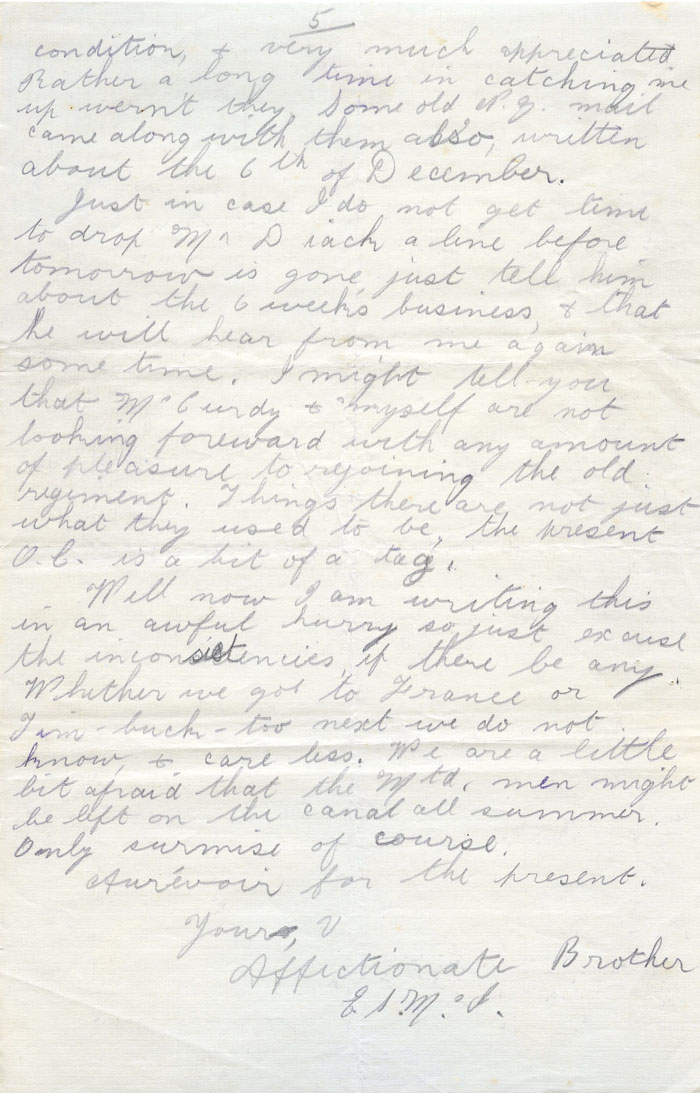 5
condition, & very much appreciated
Rather a long time in catching me
up wern't they. Some old N.Z. mail
came along with them also, written
about the 6th of December.
Just in case I do not get time
to drop Mr Diack a line before
tomorrow is gone just tell him
about the 6 week's business, & that
he will hear from me again
some time. I might tell you
that McCurdy & myself are not
looking foreward with any amount
of pleasure to rejoining the old
regiment. Things there are not just
what they used to be, the present
O.C. is a bit of a tag.
Well now I am writing this
in an awful hurry so just excuse
the inconsistencies if there be any.
Whether we got to France or
Tim-buck-too next we do not
know, & care less. We are a little
bit afraid that the Mtd. men might
be left on the canal all summer.
Only surmise of course.
Aurévoir for the present.
Yours, V
Affectionate Brother